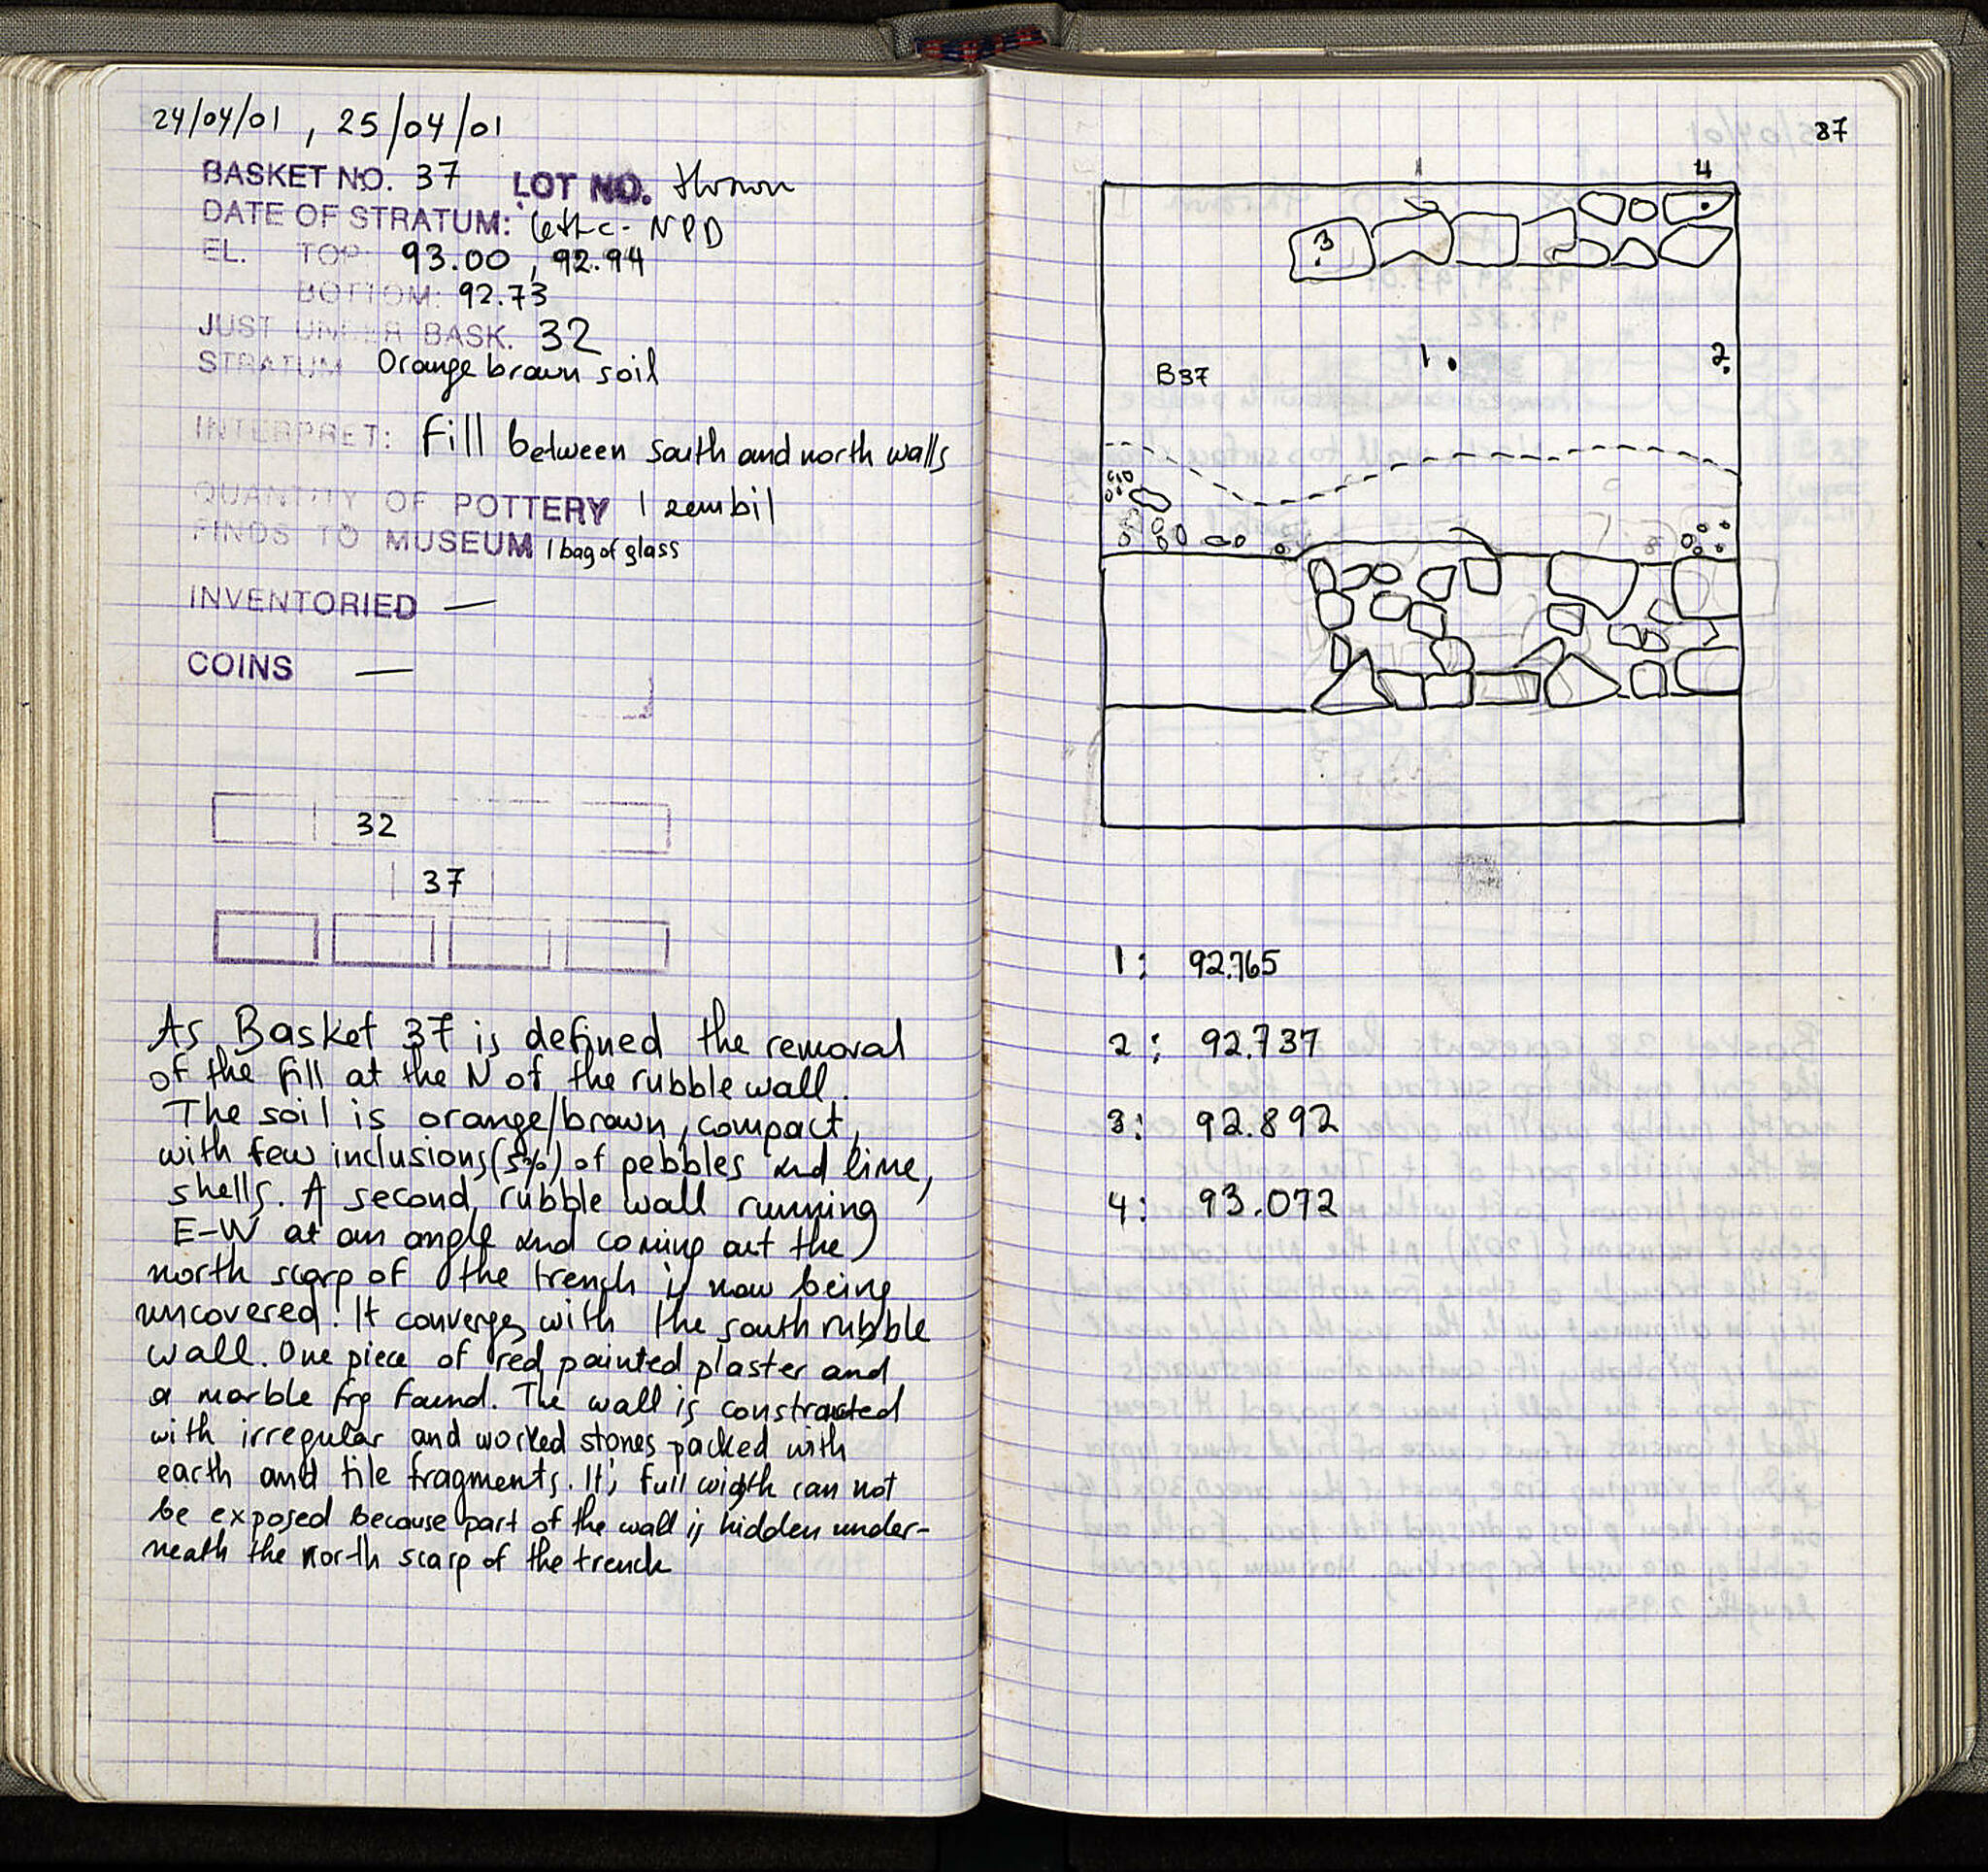 24/04/01 , 25/04/01
BASKET NO. 37 LOT NO. thrown
DATE OF STRATUM: 6th c. - NPD
EL. TOP: 93.00 , 92.94
BOTTOM: 92.73
JUST UNDER BASK. 32
STRATUM Orange brown soil
INTERPRET: Fill between south and north walls
QUANTITY OF POTTERY 1 zembil
FINDS TO MUSEUM 1 bag of glass
INVENTORIED —
COINS —
32
37
As Basket 37 is defined the removal
of the fill at the N of the rubble wall.
The soil is orange/brown, compact,
with few inclusions (5%) of pebbles and lime,
shells. A second rubble wall running
E-W at an angle and coming out the
north scarp of the trench is now being
uncovered. It converges with the south rubble
wall. One piece of red painted plaster and
a marble frg found. The wall is constructed
with irregular and worked stones packed with
earth and tile fragments. Its full width can not
be exposed because part of the wall is hidden under-
neath the north scarp of the trench
87
4
3
1
2
B37
1: 92.765
2: 92.737
3: 92.892
4: 93.072